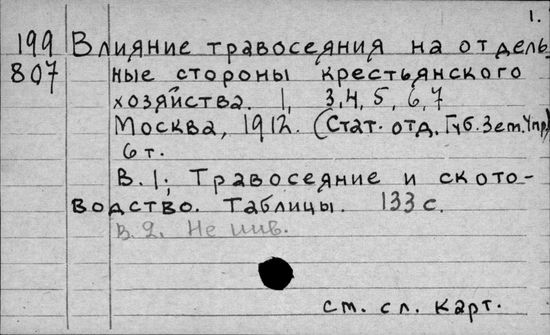 1.
199 Влияние травосеяния на отдель-
807 ные стороны крестьянского
хозяйства. 1, 3,4, 5, 6,7
Москва, 1912. (Стат. отд. Губ. Зем. Упр)
6 т.
В. 1; Травосеяние и ското-
водство. Таблицы. 133 с.
В. 2. Не
см. сл. карт.